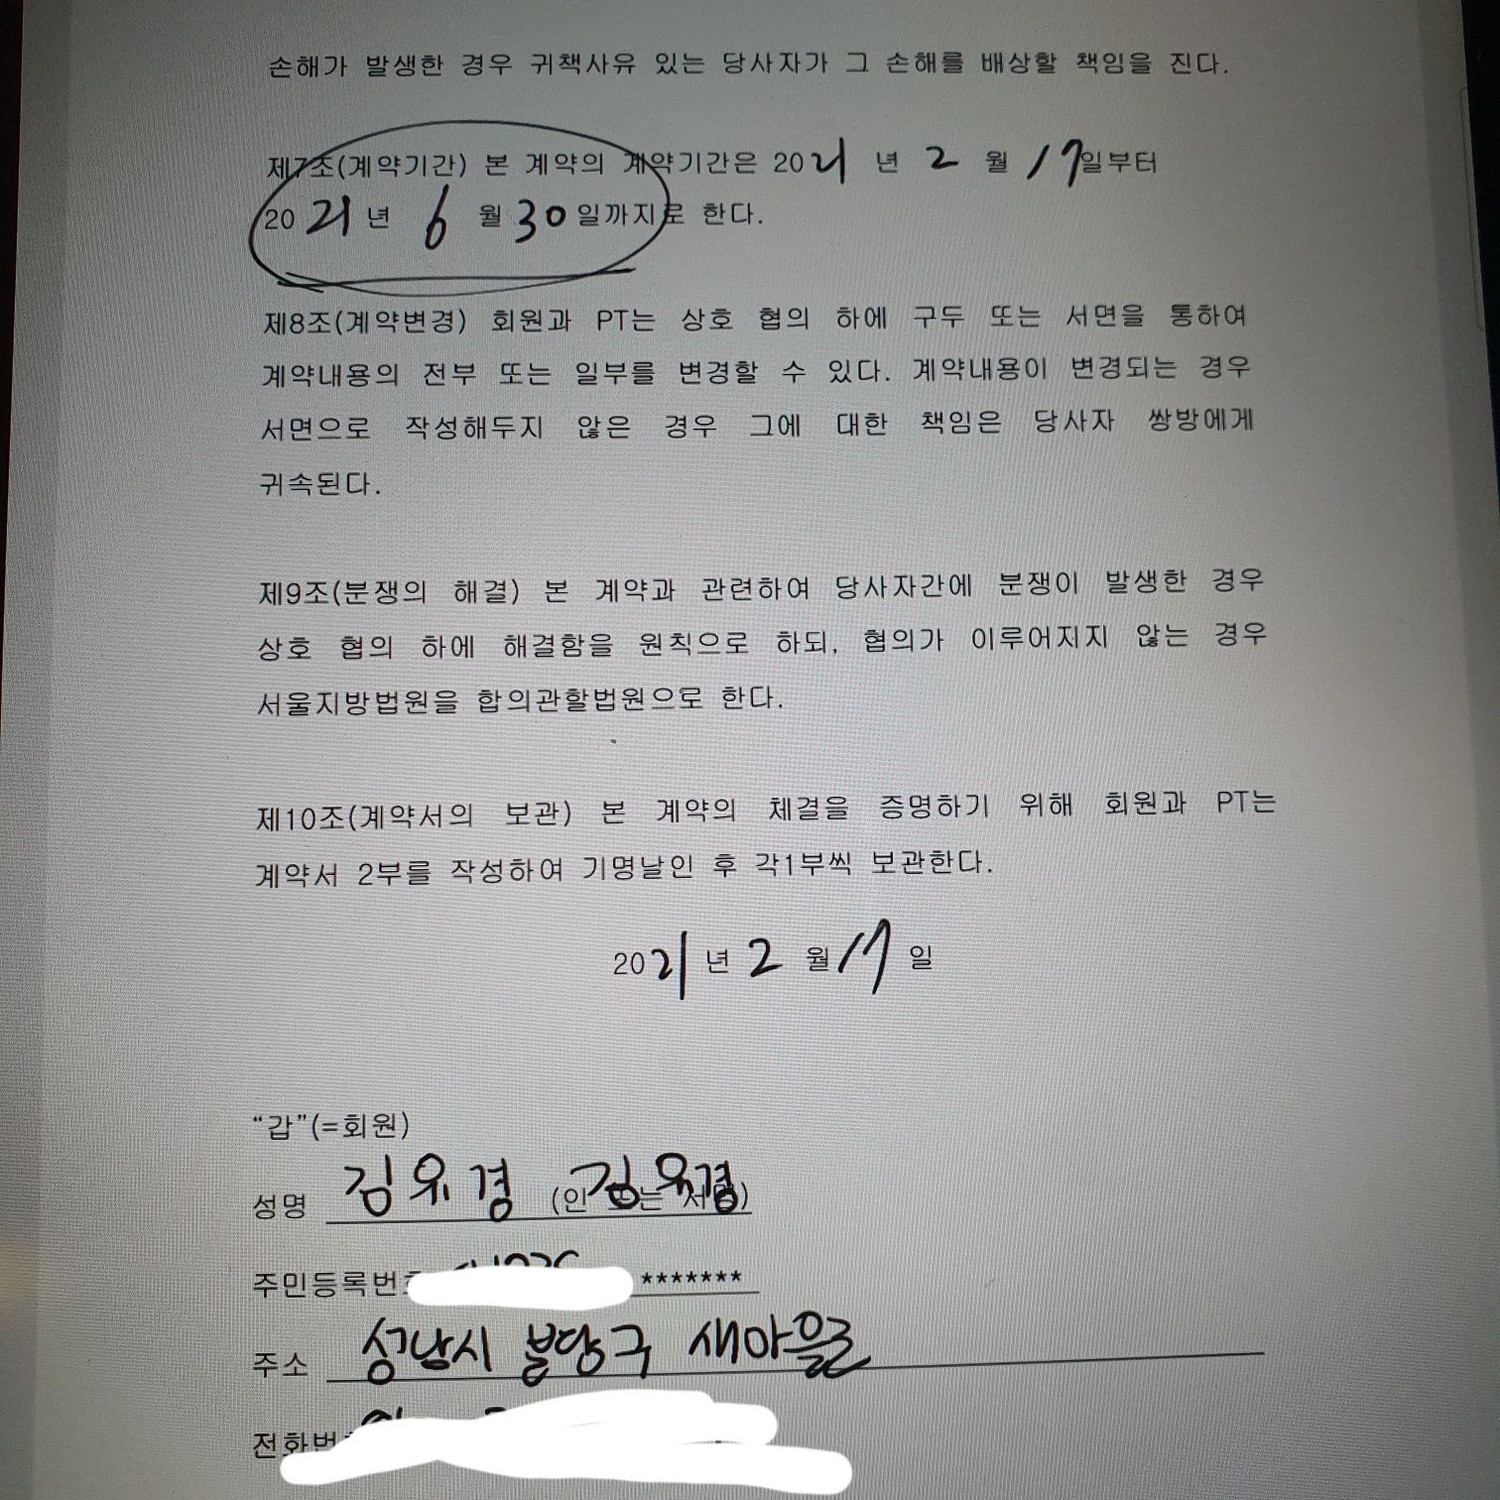 손해가 발생한 경우 귀책사유 있는 당사자가 그 손해를 배상할 책임을 진다.
제7조(계약기간) 본 계약의 계약기간은 2021 년 2 월 17일부터
2021년 6 월 30일까지로 한다.
제8조(계약변경) 회원과 PT는 상호 협의 하에 구두 또는 서면을 통하여
계약내용의 전부 또는 일부를 변경할 수 있다. 계약내용이 변경되는 경우
서면으로 작성해두지 않은 경우 그에 대한 책임은 당사자 쌍방에게
귀속된다.
제9조(분쟁의 해결) 본 계약과 관련하여 당사자간에 분쟁이 발생한 경우
상호 협의 하에 해결함을 원칙으로 하되, 협의가 이루어지지 않는 경우
서울지방법원을 합의관할법원으로 한다.
제10조(계약서의 보관) 본 계약의 체결을 증명하기 위해 회원과 PT는
계약서 2부를 작성하여 기명날인 후 각1부씩 보관한다.
2021 년 2 월 17 일
“갑”(=회원)
성명 김유경 (인 또는 서명) 김유경
주민등록번호 *******
주소 성남시 분당구 새마을로
전화번